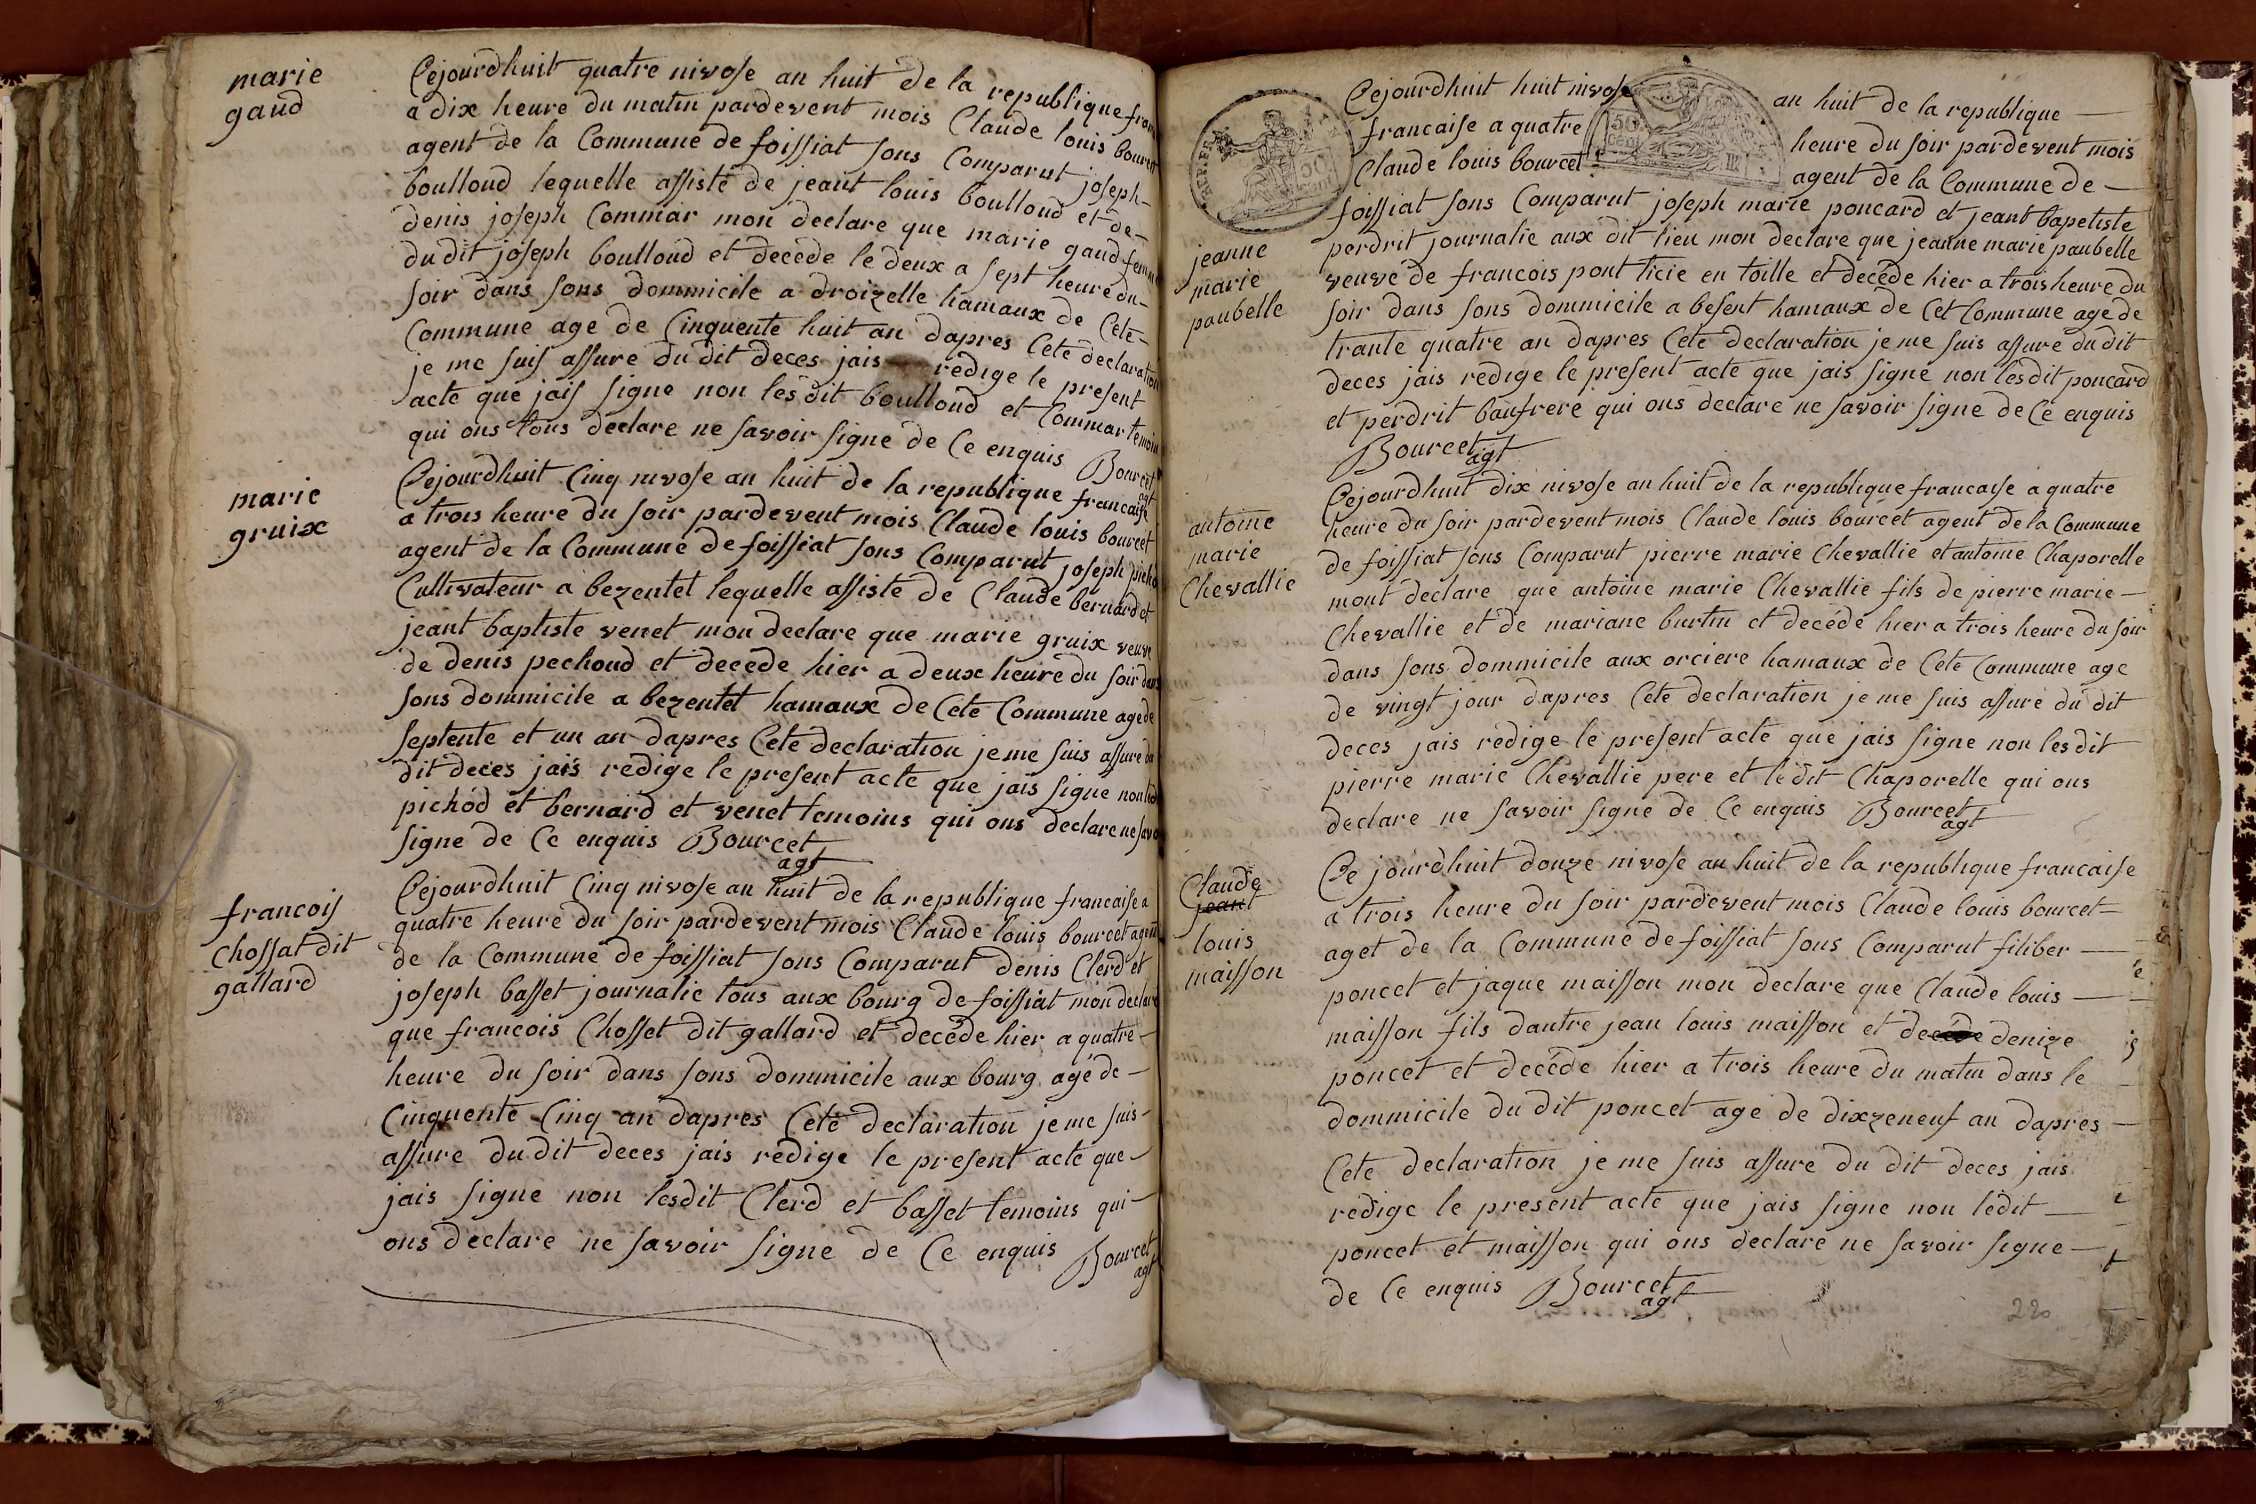 marie
gaud
Cejourdhuit quatre nivose an huit de la republique fran
a dix heure du matin pardevent mois Claude louis bourcet
agent de la Commune de foissiat sons Comparut joseph
boulloud lequelle assisté de jeant louis boulloud et de
denis joseph Commar mon declare que marie gaud femme
du dit joseph boulloud et decede le deux a sept heure du
soir dans sons dommicile a droizelle hamaux de Cete
Commune age de Cinquente huit an dapres Cete declaration
je me suis assure du dit deces jais redige le present
acte que jais signe non les dit boulloud et Commar temoin
qui ons tous declare ne savoir signe de Ce enquis Bourcet
agt
marie
gruix
Cejourdhuit Cinq nivose an huit de la republique francaise
a trois heure du soir pardevent mois Claude louis bourcet
agent de la Commune de foissiat sons Comparut joseph pichod
Cultivateur a bezentet lequelle assisté de Claude bernard et
jeant baptiste venet mon declare que marie gruix veuve
de denis pechoud et decede hier a deux heure du soir dans
sons dommicile a bezentet hamaux de Cete Commune age de
septente et un an dapres Cete declaration je me suis assure du
dit deces jais redige le present acte que jais signe non
pichod et bernard et venet temoins qui ons declare ne savoir
signe de Ce enquis Bourcet
agt
francois
Chossat dit
gallard
Cejourdhuit Cinq nivose an huit de la republique francaise a
quatre heure du soir pardevent mois Claude louis bourcet agent
de la Commune de foissiat sons Comparut denis Clerd et
joseph basset journalie tous aux bourg de foissiat mon declare
que francois Chosset dit gallard et decede hier a quatre
heure du soir dans sons dommicile aux bourg age de
Cinquente Cinq an dapres Cete declaration je me suis
assure du dit deces jais redige le present acte que
jais signe non lesdit Clerd et basset temoins qui
ons declare ne savoir signe de Ce enquis Bourcet
agt
50
cent
50
Cent
III
jeanne
marie
paubelle
Cejourdhuit huit nivose an huit de la republique
francaise a quatre heure du soir pardevent mois
Claude louis bourcet agent de la Commune de
foissiat sons Comparut joseph marie poncard et jeant bapetiste
perdrit journalie aux dit lieu mon declare que jeanne marie paubelle
veuve de francois pont ticie en toille et decede hier a trois heure du
soir dans sons dommicile a besent hamaux de Cet Commune age de
trante quatre an dapres Cete declaration je me suis assure du dit
deces jais redige le present acte que jais signe non lesdit poncard
et perdrit baufrere qui ons declare ne savoir signe de Ce enquis
Bourcet
agt
antoine
marie
Chevallie
Cejourdhuit dix nivose an huit de la republique francaise a quatre
heure du soir pardevent mois Claude louis bourcet agent de la Commune
de foissiat sons Comparut pierre marie Chevallie et antoine Chaporelle
mont declare que antoine marie Chevallie fils de pierre marie
Chevallie et de mariane burtin et decede hier a trois heure du soir
dans sons dommicile aux orciere hamaux de Cete Commune age
de vingt jour dapres Cete declaration je me suis assure du dit
deces jais redige le present acte que jais signe non lesdit
pierre marie Chevallie pere et le dit Chaporelle qui ons
declare ne savoir signe de Ce enquis Bourcet
agt
Claude
jeant
louis
maisson
Ce jourdhuit douze nivose an huit de la republique francaise
a trois heure du soir pardevent mois Claude louis bourcet
aget de la Commune de foissiat sons Comparut filiber
poncet et jaque maisson mon declare que Claude louis
maisson fils dautre jean louis maisson et de denize
poncet et decede hier a trois heure du matin dans le
dommicile du dit poncet age de dixzeneuf an dapres
Cete declaration je me suis assure du dit deces jais
redige le present acte que jais signe non ledit
poncet et maisson qui ons declare ne savoir signe
de Ce enquis Bourcet
agt
220